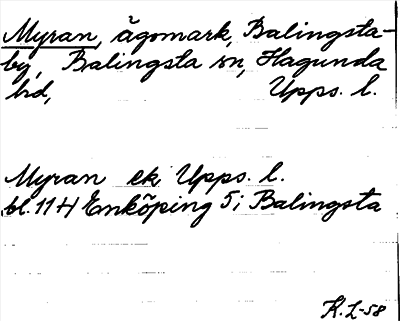 Myran, ägomark, Balingsta-
by, Balingsta sn, Hagunda
hd, Upps. l.
Myran ek Upps. l.
bl. 114 Enköping 5i Balingsta
K. L-58